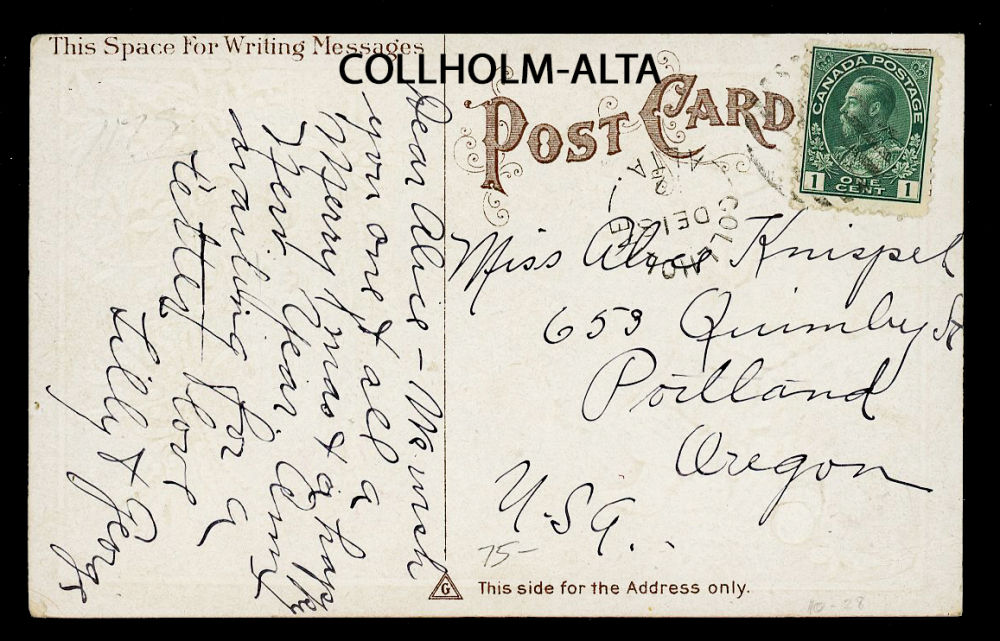 This Space For Writing Messages
COLLHOLM-ALTA
POST CARD
CANADA POSTAGE
1 ONE CENT 1
COLLHO
DE 15
ALTA
Dear Alice - We wish
you one & all a
Merry Xmas & a happy
New Year. Am
waiting for a
letter. Love
Lilly & George
Miss Alice Knispel
653 Quimby St
Portland
Oregon
U.S.A.
75-
G
This side for the Address only.
10-28